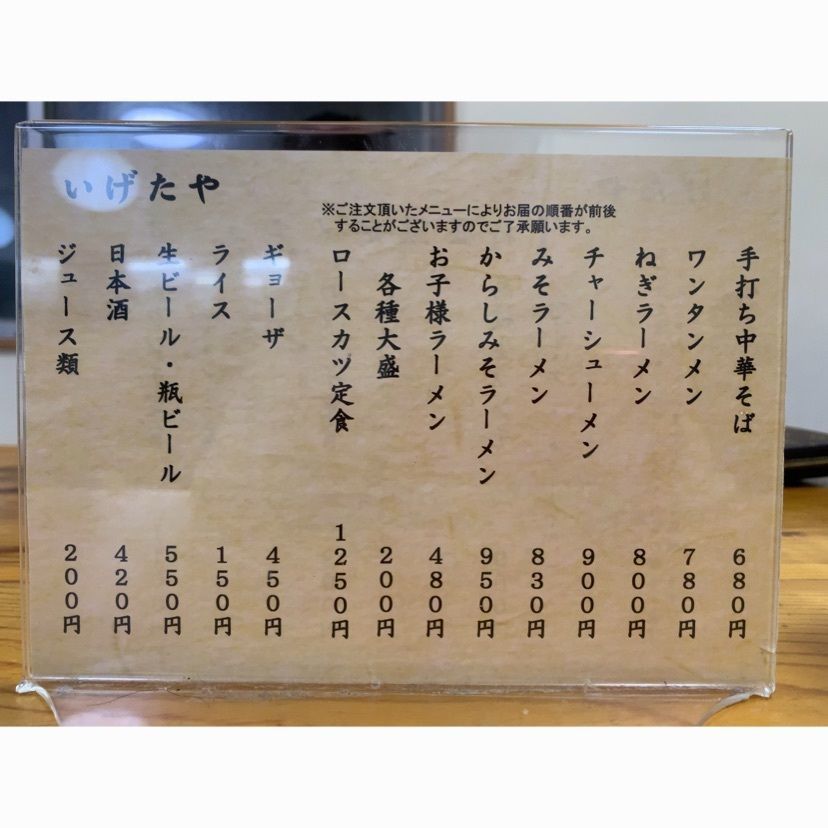 いげたや
※ご注文頂いたメニューによりお届の順番が前後
することがございますのでご了承願います。
手打ち中華そば 680円
ワンタンメン 780円
ねぎラーメン 800円
チャーシューメン 900円
みそラーメン 830円
からしみそラーメン 950円
お子様ラーメン 480円
各種大盛 200円
ロースカツ定食 1250円
ギョーザ 450円
ライス 150円
生ビール・瓶ビール 550円
日本酒 420円
ジュース類 200円